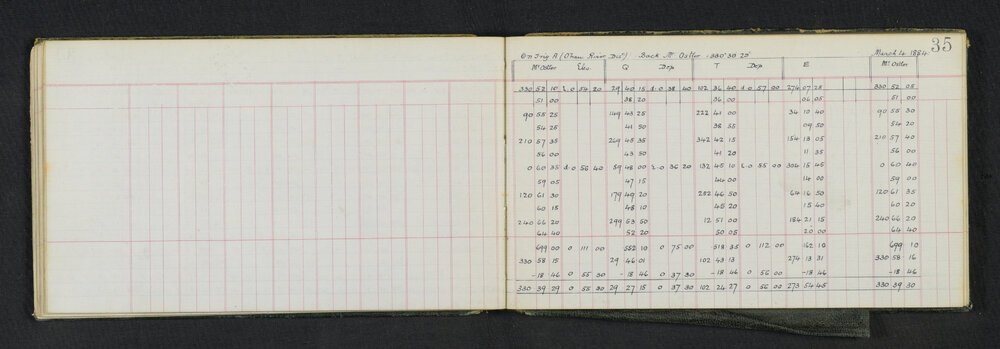 35
On Trig A (Ohau River Dist) Back Mt Ostler 330° 30' 25" March 4 1884
Mt Ostler Elev. Q Dep T Dep E Mt Ostler
330 52 10 E 0 54 20 29 40 15 d 0 38 40 102 36 40 d 0 57 00 274 07 25 330 52 05
51 00 38 20 36 00 06 05 51 00
90 55 25 149 43 25 222 41 00 34 10 40 90 55 30
54 25 41 50 38 55 09 50 54 20
210 57 35 269 45 35 342 42 15 154 13 05 210 57 40
56 00 43 50 41 20 11 35 56 00
0 60 35 d 0 56 40 59 48 00 E 0 36 20 132 45 10 E 0 55 00 304 15 45 0 60 40
59 05 47 15 44 00 14 00 59 00
120 61 30 179 49 20 252 46 50 64 16 50 120 61 35
60 15 48 10 45 20 15 40 60 20
240 66 20 299 53 50 12 51 00 184 21 15 240 66 20
64 40 52 20 50 05 20 00 64 40
699 00 0 111 00 552 10 0 75 00 518 35 0 112 00 162 10 699 10
330 58 15 29 46 01 102 43 13 274 13 31 330 58 16
-18 46 0 55 30 -18 46 0 37 30 -18 46 0 56 00 -18 46 -18 46
330 39 29 0 55 30 29 27 15 0 37 30 102 24 27 0 56 00 273 54 45 330 39 30